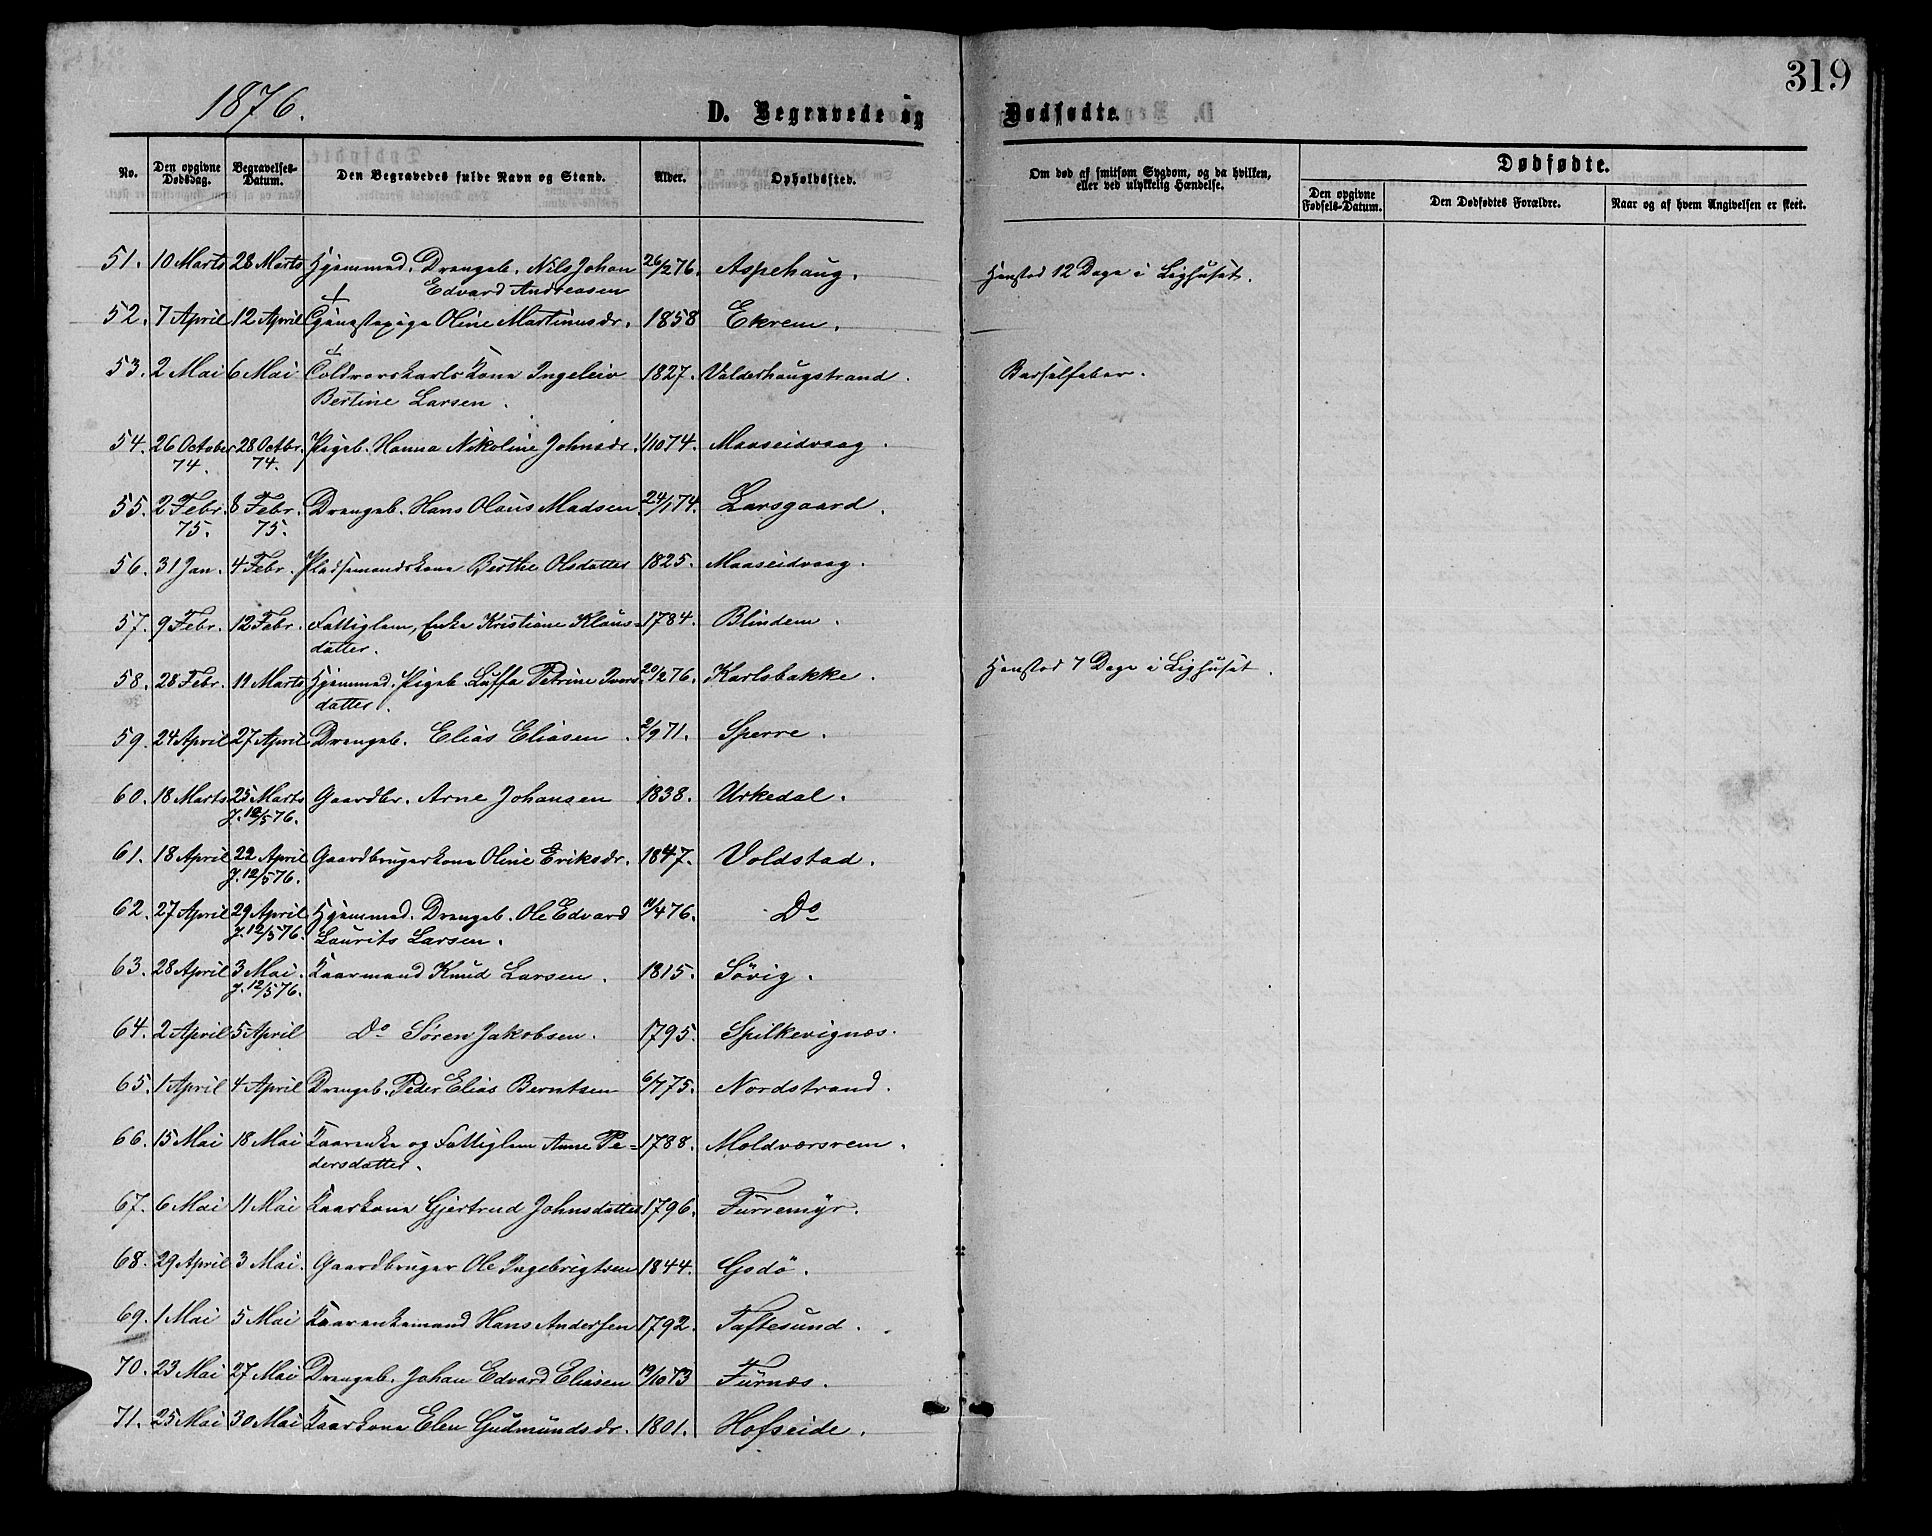 319
1876.
D. Begravede og Dødfødte.
No. Den opgivne Dødsdag. Begravelses-Datum. Den Begravedes fulde Navn og Stand. Alder. Opholdssted. Om død af smitsom Sygdom, og da hvilken, eller ved ulykkelig Hændelse. Dødfødte.
Den opgivne Fødsels-Datum. Den Dødfødtes Forældre. Naar og af hvem Angivelsen er skeet.
51. 10 Marts 28 Marts Hjemmed. Drengeb. Nils Johan 26/2 76. Aspehaug. Henstod 12 Dage i Lighuset.
Edvard Andreasen
52. 7 April 12 April Tjenestepige Oline Martinusdr. 1858 Ekrem.
53. 2 Mai 6 Mai Toldvorskarls Kone Ingeleiv 1827. Valderhaugstrand. Barselfeber.
Bertine Larsen.
54. 26 October 28 Octbr. Pigeb. Hanna Nikoline Johnsdr. 1/10 74. Maaseidvaag.
74. 74.
55. 2 Febr. 8 Febr. Drengeb. Hans Olaus Madsen. 24/1 74. Larsgaard.
75. 75.
56. 31 Jan. 4 Febr. Pladsemandskone Berthe Olsdatter 1825. Maaseidvaag.
57. 9 Febr. 12 Febr. Fattiglem, Enke Kristiane Klaus- 1784. Blindem.
datter.
58. 28 Febr. 11 Marts Hjemmed. Pigeb. Luffa Petrine Ivers- 20/2 76. Karlsbakke. Henstod 7 Dage i Lighuset.
datter.
59. 24 April 27 April Drengeb. Elias Eliasen. 2/9 71. Sperre.
60. 18 Marts 25 Marts Gaardbr. Arne Johansen 1838. Urkedal.
J. 12/5 76.
61. 18 April 22 April Gaardbrugerkone Oline Eriksdr. 1847. Voldstad.
J. 12/5 76.
62. 27 April 29 April Hjemmed. Drengeb. Ole Edvard 11/4 76. Do
J. 12/5 76. Laurits Larsen.
63. 28 April 3 Mai. Kaarmand Knud Larsen. 1815. Søvig.
J. 12/5 76.
64. 2 April 5 April Do Søren Jakobsen. 1795. Spilkevignæs.
65. 1 April 4 April Drengeb. Peder Elias Berntsen 6/7 75. Nordstrand.
66. 15 Mai 18 Mai Kaarenke og Fattiglem Anne Pe- 1788. Moldværsrem.
dersdatter.
67. 6 Mai 11 Mai Kaarkone Gjertrud Johnsdatter 1796. Furremyr.
68. 29 April 3 Mai. Gaardbruger Ole Ingebrigtsen 1844. Godø.
69. 1 Mai 5 Mai Kaarenkemand Hans Andersen 1792. Taftesund.
70. 23 Mai 27 Mai Drengeb. Johan Edvard Eliasen 19/10 73 Furnæs.
71. 25 Mai 30 Mai Kaarkone Elen Gudmundsdr. 1801. Hofseide.